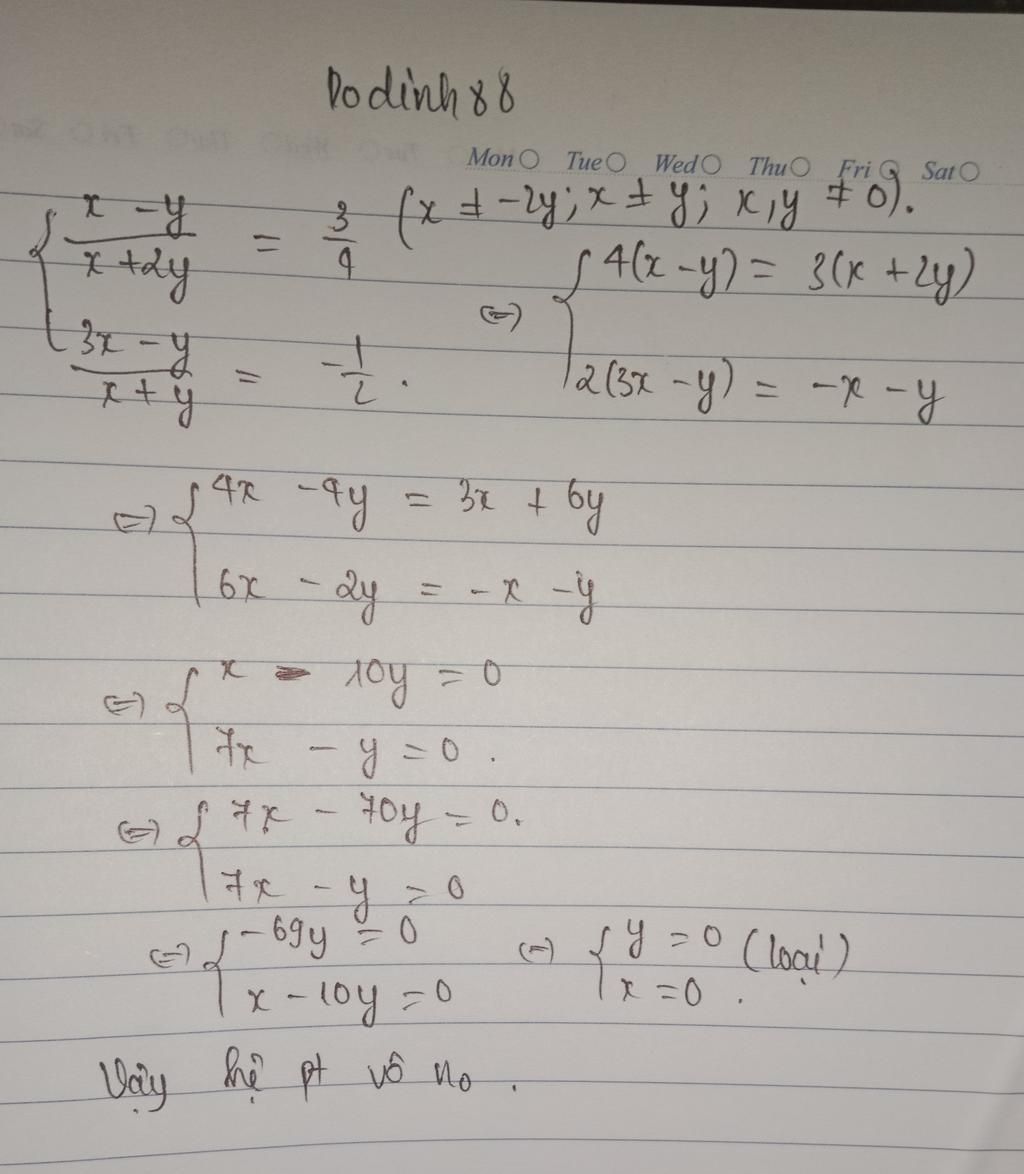 Dodinh88
Mon Tue Wed Thu Fri Sat
{ (x - y)/(x + 2y) = 3/4 (x ≠ -2y; x ≠ y; x, y ≠ 0).
(3x - y)/(x + y) = -1/2.
⇔ { 4(x - y) = 3(x + 2y)
2(3x - y) = -x - y
⇔ { 4x - 4y = 3x + 6y
6x - 2y = -x - y
⇔ { x - 10y = 0
7x - y = 0.
⇔ { 7x - 70y = 0.
7x - y = 0
⇔ { -69y = 0
x - 10y = 0
⇔ { y = 0 (loại)
x = 0.
Vậy hệ pt vô no.